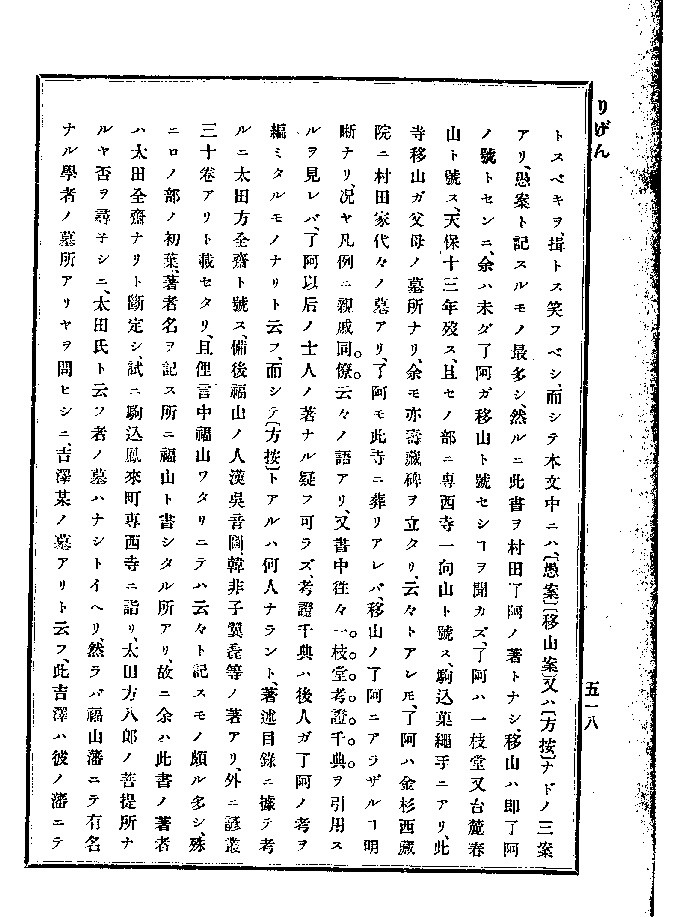 りげん
五一八
トスベキヲ、揖トス笑フベシ、而シテ本文中ニハ、〔愚案〕〔移山案〕又ハ〔方按〕ナドノ三案
アリ、愚案ト記スルモノ最多シ、然ルニ此書ヲ村田了阿ノ著トナシ、移山ハ即了阿
ノ號トセンニ、余ハ未ダ了阿ガ移山ト號セシヿヲ聞カズ、了阿ハ一枝堂又台麓春
山ト號ス、天保十三年歿ス、且セノ部ニ専西寺一向山ト號ス、駒込菓繩手ニアリ、此
寺移山ガ父母ノ墓所ナリ、余モ亦壽藏碑ヲ立タリ、云々トアレ𪜈、了阿ハ金杉西藏
院ニ村田家代々ノ墓アリ、了阿モ此寺ニ葬リアレバ、移山ノ了阿ニアラザルヿ明
晣ナリ、况ヤ凡例ニ親戚同僚云々ノ語アリ、又書中往々一枝堂考證千典ヲ引用ス
ルヲ見レバ、了阿以后ノ士人ノ著ナル疑フ可ラズ、考證千典ハ後人ガ了阿ノ考ヲ
編ミタルモノナリト云フ、而シテ〔方按〕トアルハ何人ナラント、著述目錄ニ據テ考
ルニ太田方全齋ト號ス、備後福山ノ人漢吳音圖、韓非子翼毳等ノ著アリ、外ニ諺叢
三十卷アリト載セタリ、且俚言中福山ワタリニテハ云々ト記スモノ頗ル多シ、殊
ニロノ部ノ初葉、著者名ヲ記ス所ニ福山ト書シタル所アリ、故ニ余ハ此書ノ著者
ハ太田全齋ナリト斷定シ、試ニ駒込鳳來町専西寺ニ詣リ、太田方八郎ノ菩提所ナ
ルヤ否ヲ尋子シニ、太田氏ト云フ者ノ墓ハナシトイヘリ、然ラバ福山藩ニテ有名
ナル學者ノ墓所アリヤヲ問ヒシニ、吉澤某ノ墓アリト云フ、此吉澤ハ彼ノ藩ニテ